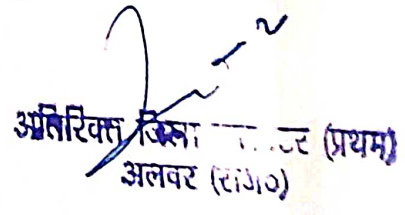 अतिरिक्त जिला (प्रथम)
अलवर (राज०)